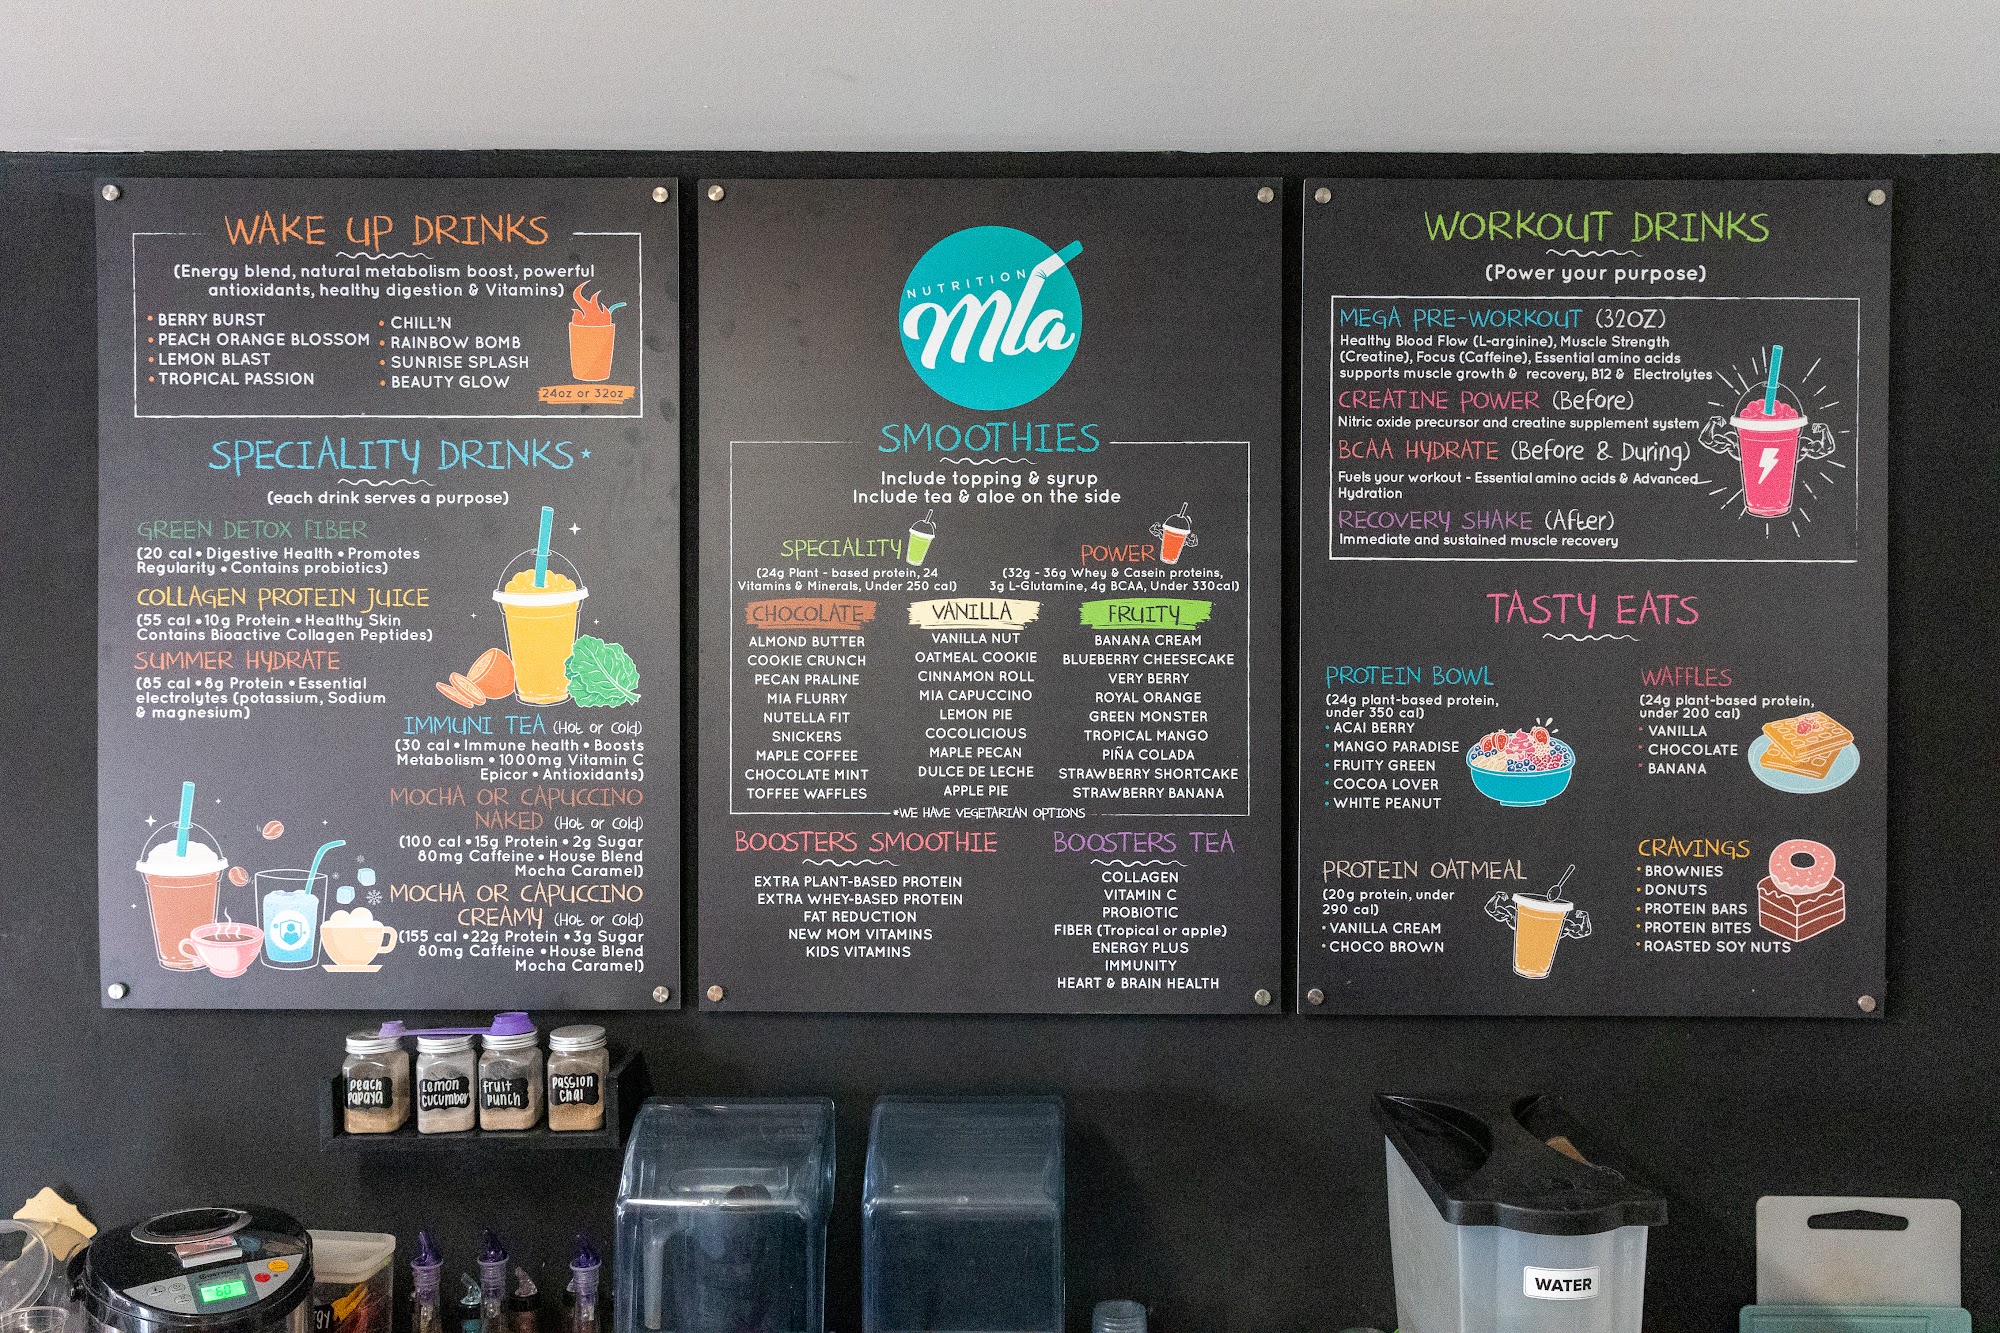 WAKE UP DRINKS
(Energy blend, natural metabolism boost, powerful
antioxidants, healthy digestion & Vitamins)
• BERRY BURST
• PEACH ORANGE BLOSSOM
• LEMON BLAST
• TROPICAL PASSION
• CHILL'N
• RAINBOW BOMB
• SUNRISE SPLASH
• BEAUTY GLOW
24oz or 32oz
SPECIALITY DRINKS*
(each drink serves a purpose)
GREEN DETOX FIBER
(20 cal • Digestive Health • Promotes
Regularity • Contains probiotics)
COLLAGEN PROTEIN JUICE
(55 cal • 10g Protein • Healthy Skin
Contains Bioactive Collagen Peptides)
SUMMER HYDRATE
(85 cal • 8g Protein • Essential
electrolytes (potassium, Sodium
& magnesium)
IMMUNI TEA (Hot or Cold)
(30 cal • Immune health • Boosts
Metabolism • 1000mg Vitamin C
Epicor • Antioxidants)
MOCHA OR CAPUCCINO
NAKED (Hot or Cold)
(100 cal • 15g Protein • 2g Sugar
80mg Caffeine • House Blend
Mocha Caramel)
MOCHA OR CAPUCCINO
CREAMY (Hot or Cold)
(155 cal • 22g Protein • 3g Sugar
80mg Caffeine • House Blend
Mocha Caramel)
NUTRITION
Mla
SMOOTHIES
Include topping & syrup
Include tea & aloe on the side
SPECIALITY
(24g Plant - based protein, 24
Vitamins & Minerals, Under 250 cal)
POWER
(32g - 36g Whey & Casein proteins,
3g L-Glutamine, 4g BCAA, Under 330cal)
CHOCOLATE
ALMOND BUTTER
COOKIE CRUNCH
PECAN PRALINE
MIA FLURRY
NUTELLA FIT
SNICKERS
MAPLE COFFEE
CHOCOLATE MINT
TOFFEE WAFFLES
VANILLA
VANILLA NUT
OATMEAL COOKIE
CINNAMON ROLL
MIA CAPUCCINO
LEMON PIE
COCOLICIOUS
MAPLE PECAN
DULCE DE LECHE
APPLE PIE
FRUITY
BANANA CREAM
BLUEBERRY CHEESECAKE
VERY BERRY
ROYAL ORANGE
GREEN MONSTER
TROPICAL MANGO
PIÑA COLADA
STRAWBERRY SHORTCAKE
STRAWBERRY BANANA
*WE HAVE VEGETARIAN OPTIONS
BOOSTERS SMOOTHIE
EXTRA PLANT-BASED PROTEIN
EXTRA WHEY-BASED PROTEIN
FAT REDUCTION
NEW MOM VITAMINS
KIDS VITAMINS
BOOSTERS TEA
COLLAGEN
VITAMIN C
PROBIOTIC
FIBER (Tropical or apple)
ENERGY PLUS
IMMUNITY
HEART & BRAIN HEALTH
WORKOUT DRINKS
(Power your purpose)
MEGA PRE-WORKOUT (32OZ)
Healthy Blood Flow (L-arginine), Muscle Strength
(Creatine), Focus (Caffeine), Essential amino acids
supports muscle growth & recovery, B12 & Electrolytes
CREATINE POWER (Before)
Nitric oxide precursor and creatine supplement system
BCAA HYDRATE (Before & During)
Fuels your workout - Essential amino acids & Advanced
Hydration
RECOVERY SHAKE (After)
Immediate and sustained muscle recovery
TASTY EATS
PROTEIN BOWL
(24g plant-based protein,
under 350 cal)
• ACAI BERRY
• MANGO PARADISE
• FRUITY GREEN
• COCOA LOVER
• WHITE PEANUT
WAFFLES
(24g plant-based protein,
under 200 cal)
• VANILLA
• CHOCOLATE
• BANANA
PROTEIN OATMEAL
(20g protein, under
290 cal)
• VANILLA CREAM
• CHOCO BROWN
CRAVINGS
• BROWNIES
• DONUTS
• PROTEIN BARS
• PROTEIN BITES
• ROASTED SOY NUTS
Peach
Papaya
Lemon
Cucumber
Fruit
Punch
Passion
Chai
60
WATER